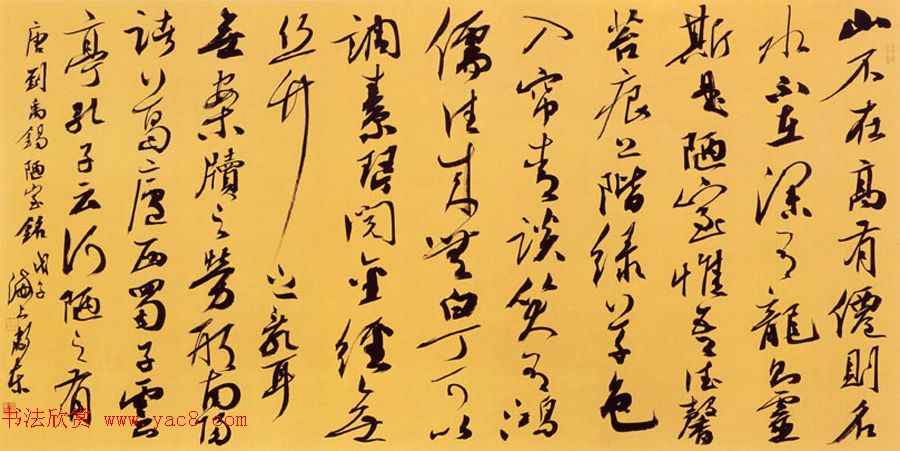 山不在高有僊則名
水不在深有龍則靈
斯是陋室惟吾德馨
苔痕上階緑草色
入帘青談笑有鴻
儒往來無白丁可以
調素琴閲金經無
丝竹之亂耳
無案牘之勞形南陽
諸葛廬西蜀子雲
亭孔子云何陋之有
唐劉禹錫陋室銘 戊子
海上
书法欣赏 www.yac8.com